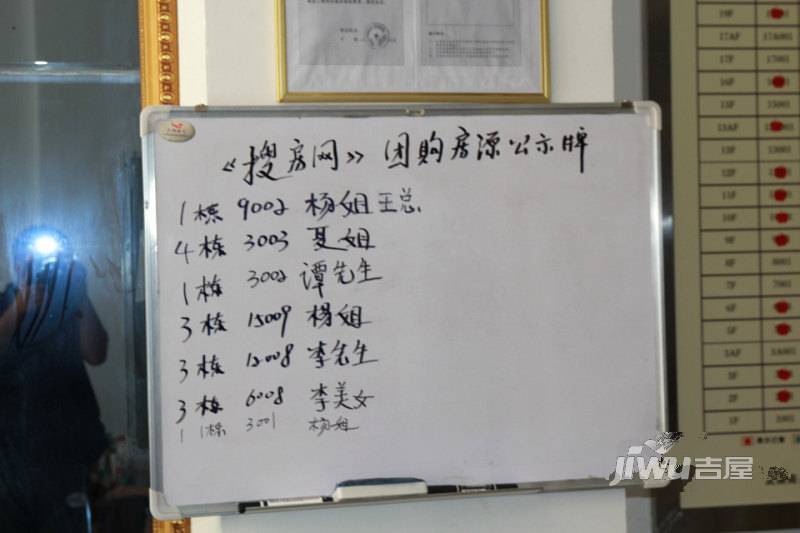 《搜房网》团购房源公示牌
1栋 9002 杨姐 王总
4栋 3003 夏姐
1栋 3002 谭先生
3栋 15009 杨姐
3栋 12008 李先生
3栋 6008 李美女
1 1栋 3001 杨姐
19F
17AF 17A001
17F 17001
16F
15F 15001
13AF
13F 13001
12F
11F
10F
9F
8F 8001
7F 7001
6F
5F
3AF 3A001
3F
2F
1F 1001
JIWU吉屋